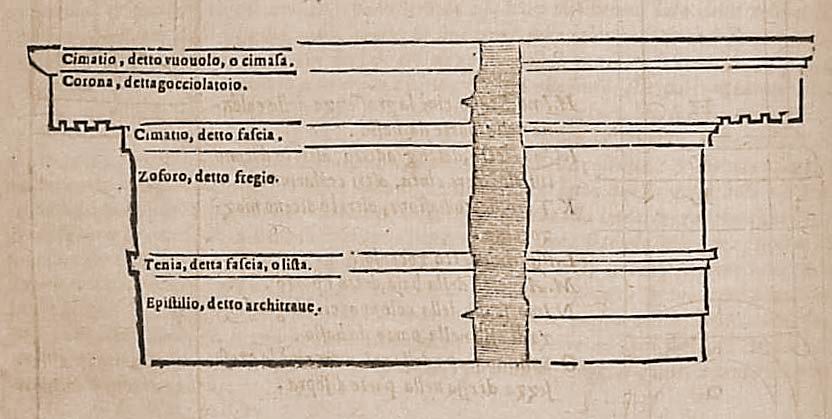 Cimatio, detto vuouolo, o cimasa.
Corona, detta gocciolatoio.
Cimatio, detto fascia.
Zoforo, detto fregio.
Tenia, detta fascia, o lista.
Epistilio, detto architraue.